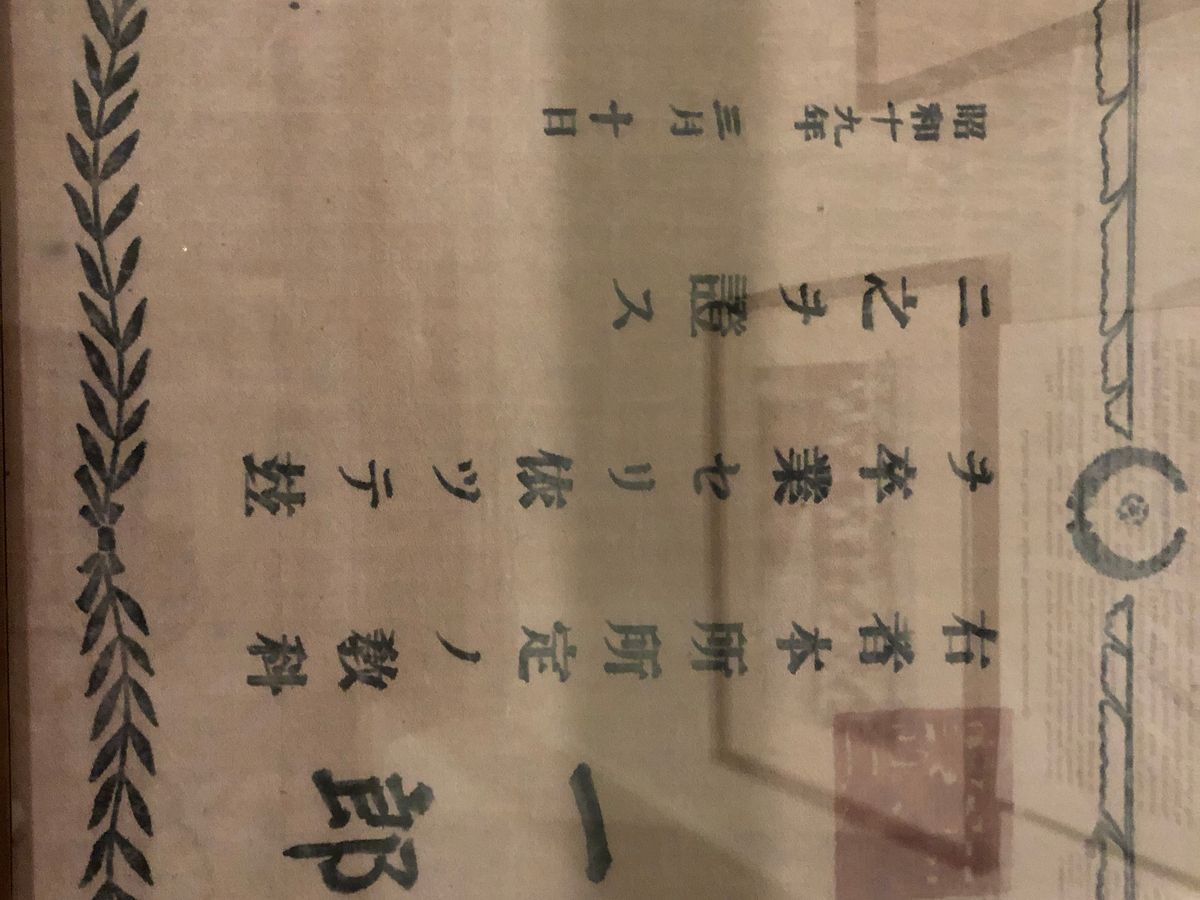 一郎
右者本所所定ノ教科
ヲ卒業セリ依ツテ茲
ニ之ヲ證ス
昭和十九年三月十日